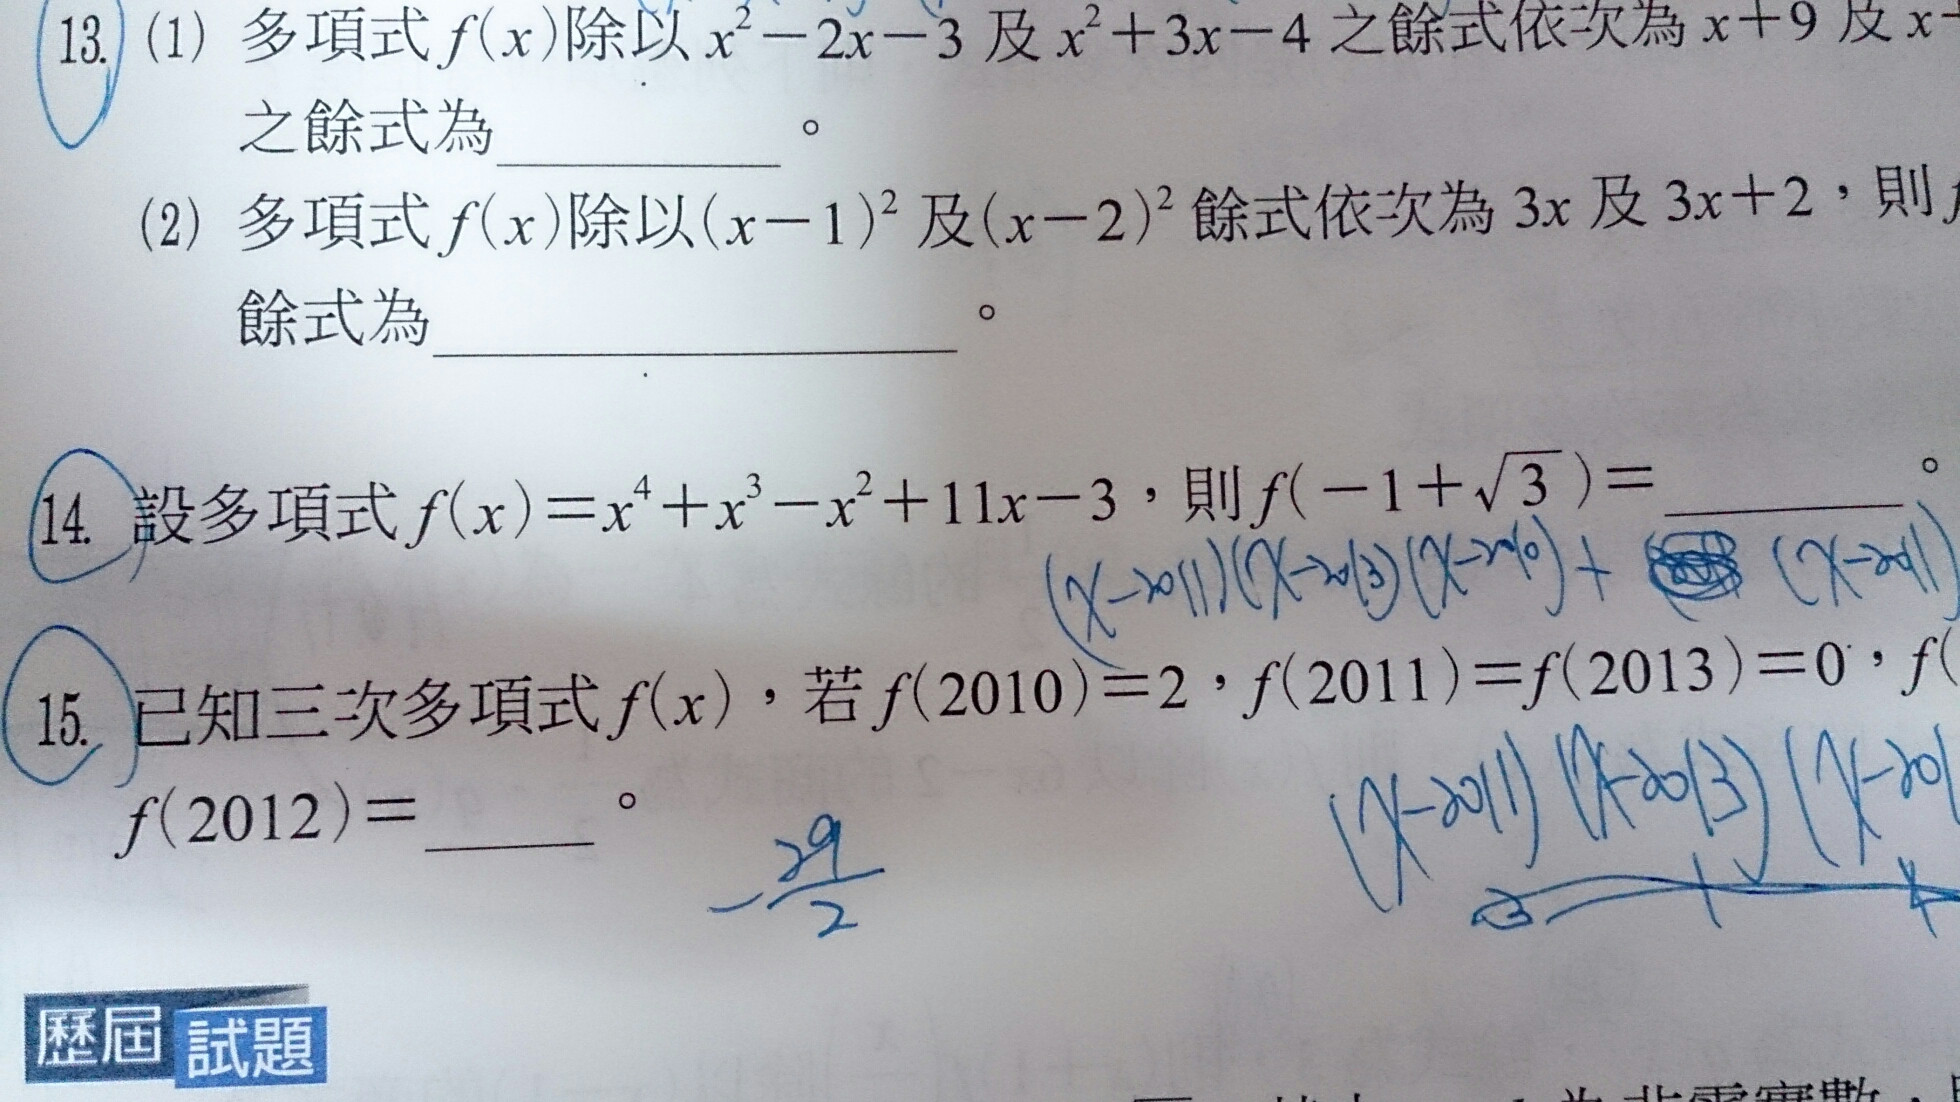 13. (1) 多項式 f(x)除以 x²－2x－3 及 x²＋3x－4 之餘式依次為 x＋9 及 x
之餘式為________。
(2) 多項式 f(x)除以(x－1)² 及(x－2)² 餘式依次為 3x 及 3x＋2，則 f
餘式為________。
14. 設多項式 f(x)＝x⁴＋x³－x²＋11x－3，則 f(－1＋√3)＝________。
(x-2011)(x-2013)(x-2010)+ (x-2011)
15. 已知三次多項式 f(x)，若 f(2010)＝2，f(2011)＝f(2013)＝0，f(
(x-2011)(x-2013)(x-201
f(2012)＝____。
-29/2
歷屆試題